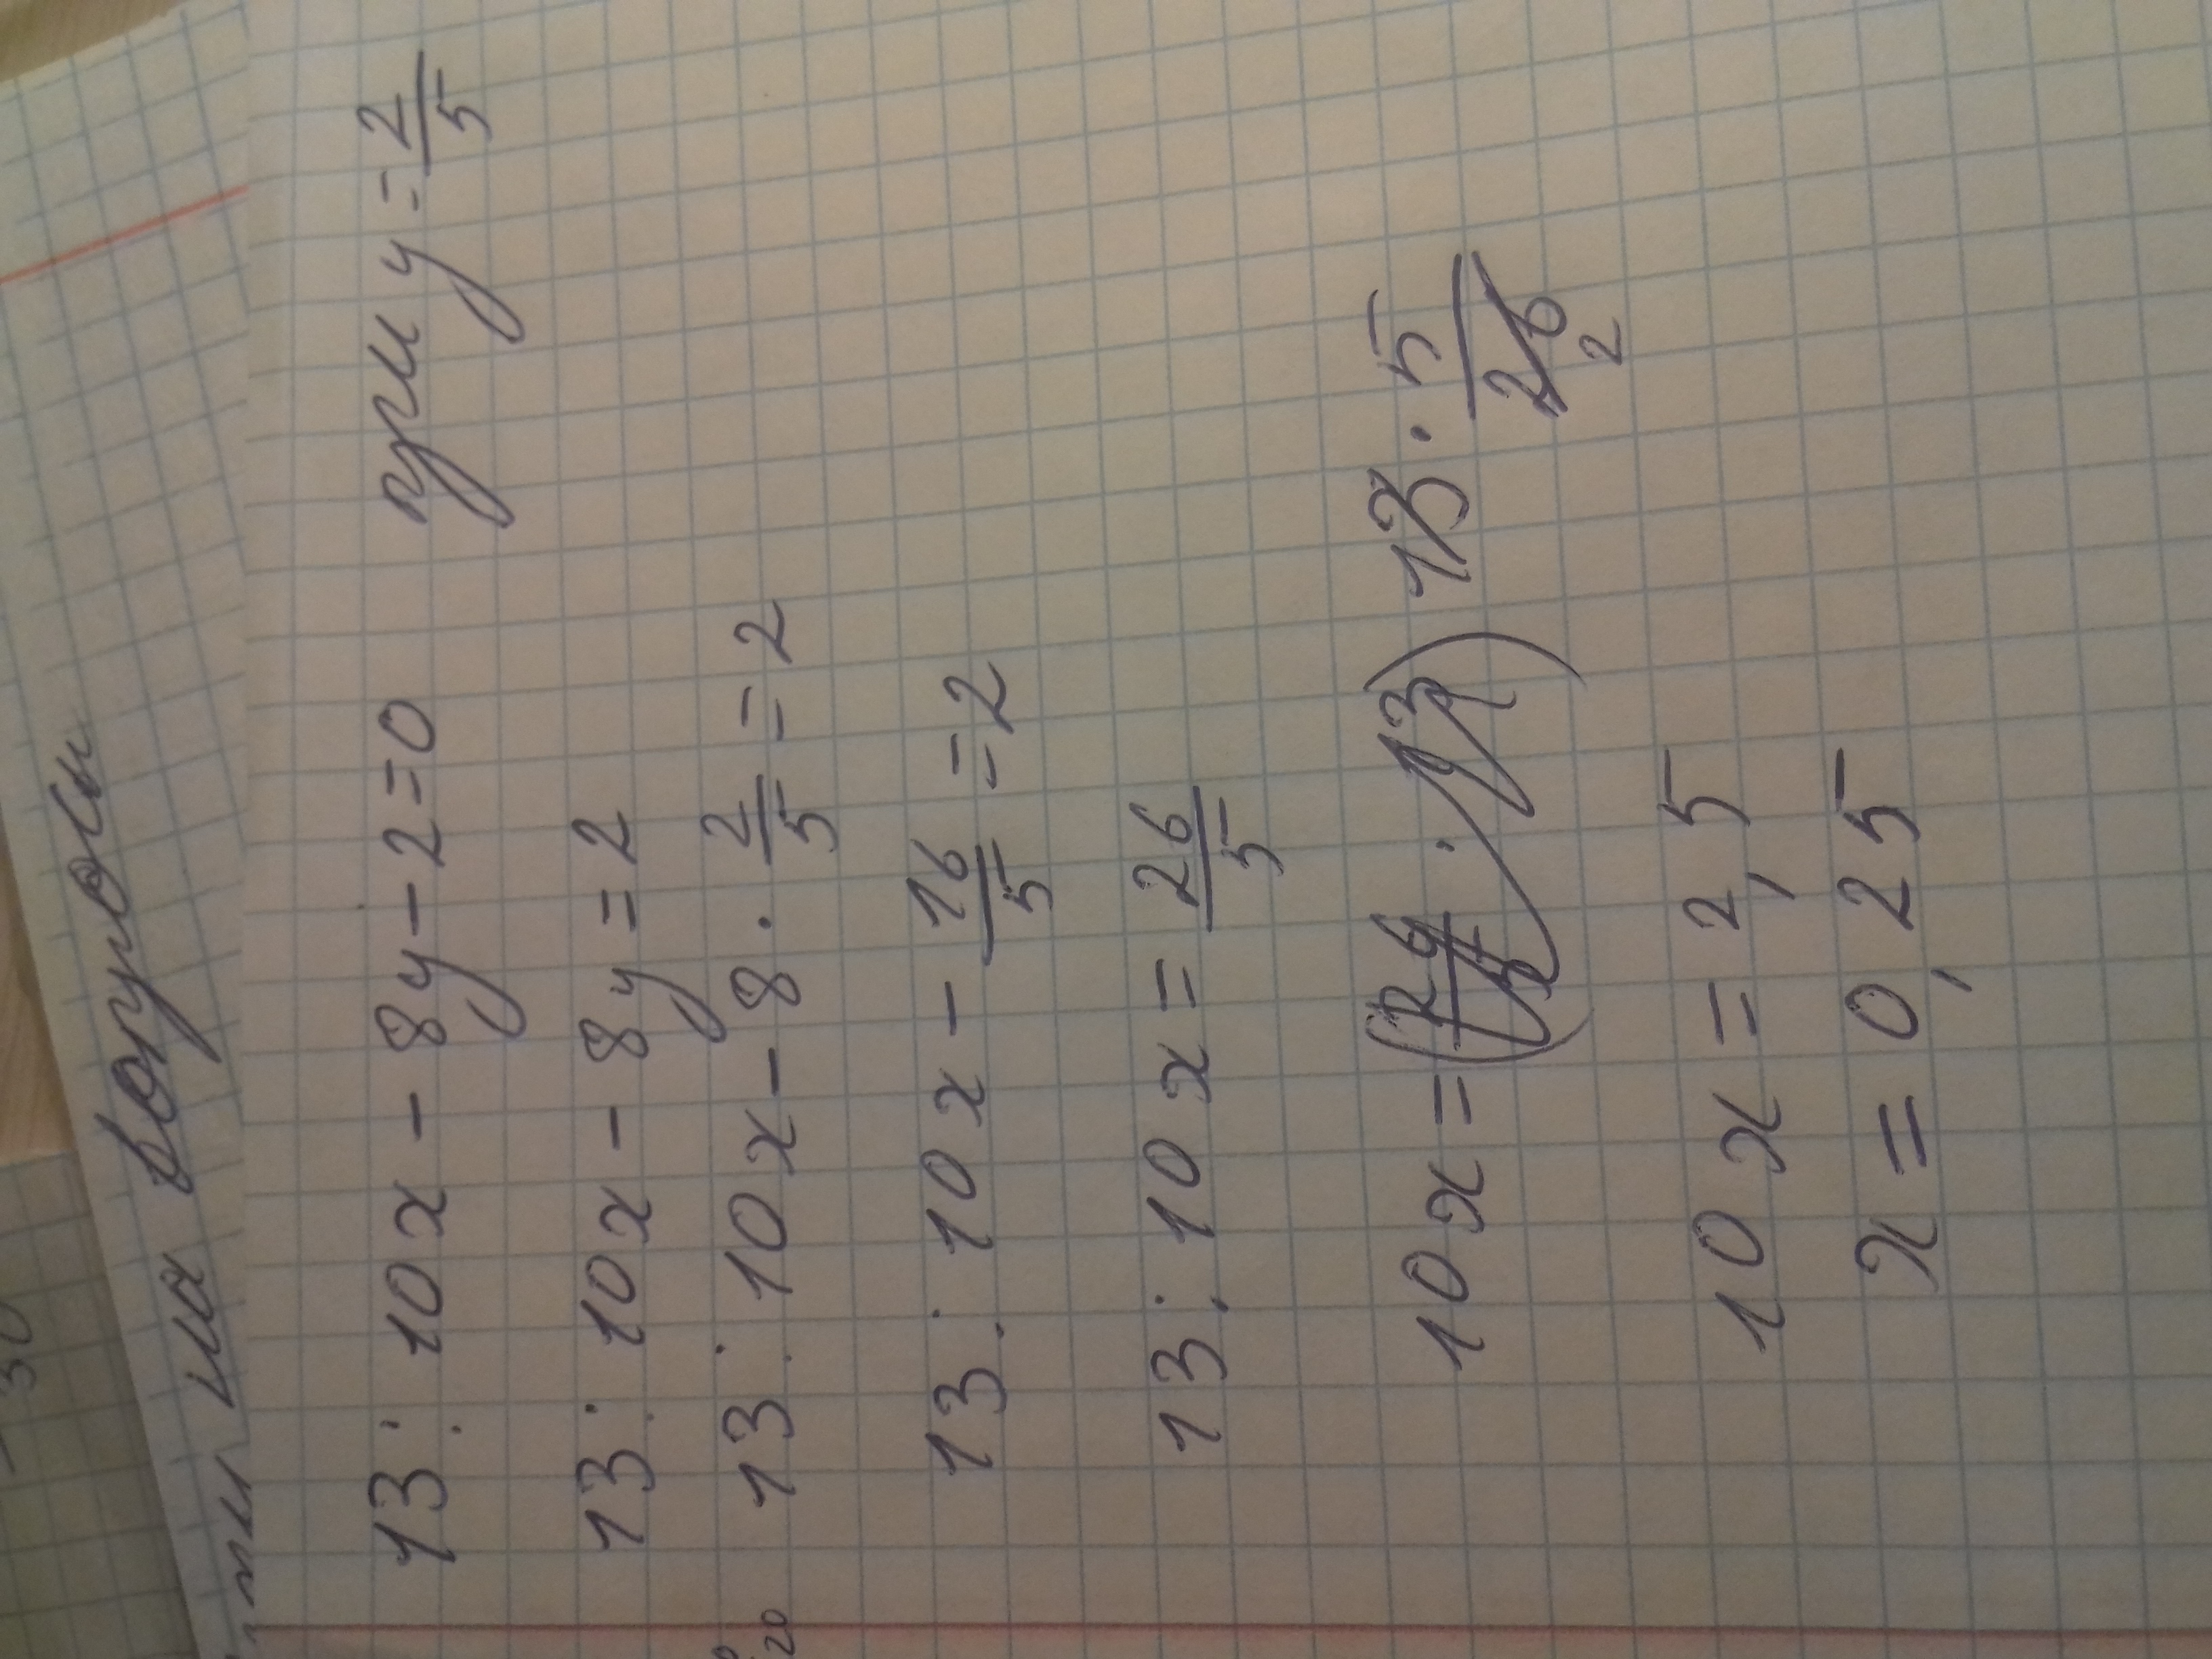 на вопросы
13 : 10x - 8y - 2 = 0 при y = 2/5
13 : 10x - 8y = 2
13 : 10x - 8 · 2/5 = 2
13 : 10x - 16/5 = 2
13 : 10x = 26/5
10x = (26/5 : 13) 13 · 5/26 2
10x = 2,5
x = 0,25
20
30